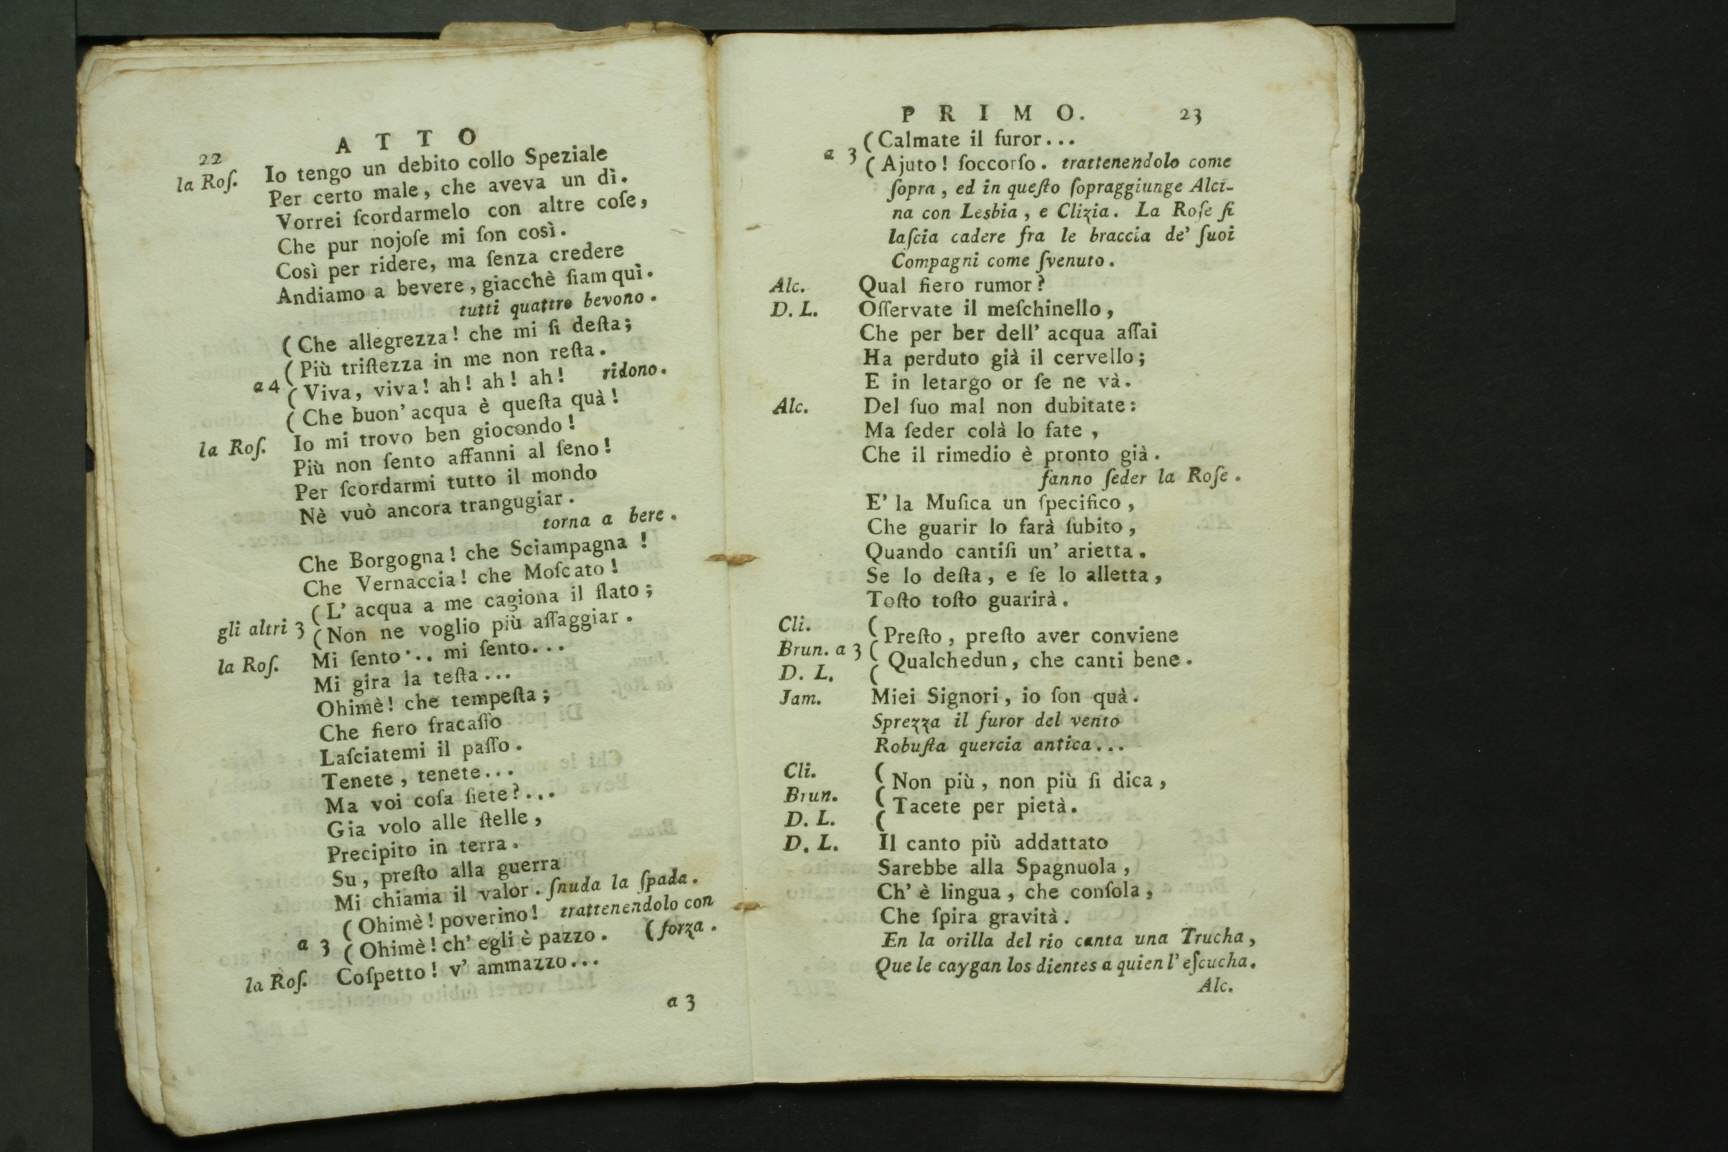 22
A T T O
la Roſ. Io tengo un debito collo Speziale
Per certo male, che aveva un dì.
Vorrei ſcordarmelo con altre coſe,
Che pur nojoſe mi ſon così.
Così per ridere, ma ſenza credere
Andiamo a bevere, giacchè ſiam quì.
tutti quattro bevono.
(Che allegrezza! che mi ſi deſta;
(Più triſtezza in me non reſta.
a 4 (Viva, viva! ah! ah! ah! ridono.
(Che buon' acqua è queſta quà!
la Roſ. Io mi trovo ben giocondo!
Più non ſento affanni al ſeno!
Per ſcordarmi tutto il mondo
Nè vuò ancora trangugiar.
torna a bere.
Che Borgogna! che Sciampagna!
Che Vernaccia! che Moſcato!
(L' acqua a me cagiona il flato;
gli altri 3 (Non ne voglio più aſſaggiar.
la Roſ. Mi ſento... mi ſento...
Mi gira la teſta...
Ohimè! che tempeſta;
Che fiero fracaſſo
Laſciatemi il paſſo.
Tenete, tenete...
Ma voi coſa ſiete?...
Gia volo alle ſtelle,
Precipito in terra.
Su, preſto alla guerra
Mi chiama il valor. ſnuda la ſpada.
(Ohimè! poverino! trattenendolo con
a 3 (Ohimè! ch' egli è pazzo. (forza.
la Roſ. Coſpetto! v' ammazzo...
a 3
P R I M O. 23
(Calmate il furor...
a 3 (Ajuto! ſoccorſo. trattenendolo come
ſopra, ed in queſto ſopraggiunge Alci-
na con Lesbia, e Clizia. La Roſe ſi
laſcia cadere fra le braccia de' ſuoi
Compagni come ſvenuto.
Alc. Qual fiero rumor?
D. L. Oſſervate il meſchinello,
Che per ber dell' acqua aſſai
Ha perduto già il cervello;
E in letargo or ſe ne và.
Alc. Del ſuo mal non dubitate:
Ma ſeder colà lo fate,
Che il rimedio è pronto già.
fanno ſeder la Roſe.
E' la Muſica un ſpecifico,
Che guarir lo farà ſubito,
Quando cantiſi un' arietta.
Se lo deſta, e ſe lo alletta,
Toſto toſto guarirà.
Cli. (
Brun. a 3 ( Preſto, preſto aver conviene
D. L. ( Qualchedun, che canti bene.
Jam. Miei Signori, io ſon quà.
Sprezza il furor del vento
Robuſta quercia antica...
Cli. ( Non più, non più ſi dica,
Brun. ( Tacete per pietà.
D. L. (
D. L. Il canto più addattato
Sarebbe alla Spagnuola,
Ch' è lingua, che conſola,
Che ſpira gravità.
En la orilla del rio canta una Trucha,
Que le caygan los dientes a quien l' eſcucha.
Alc.